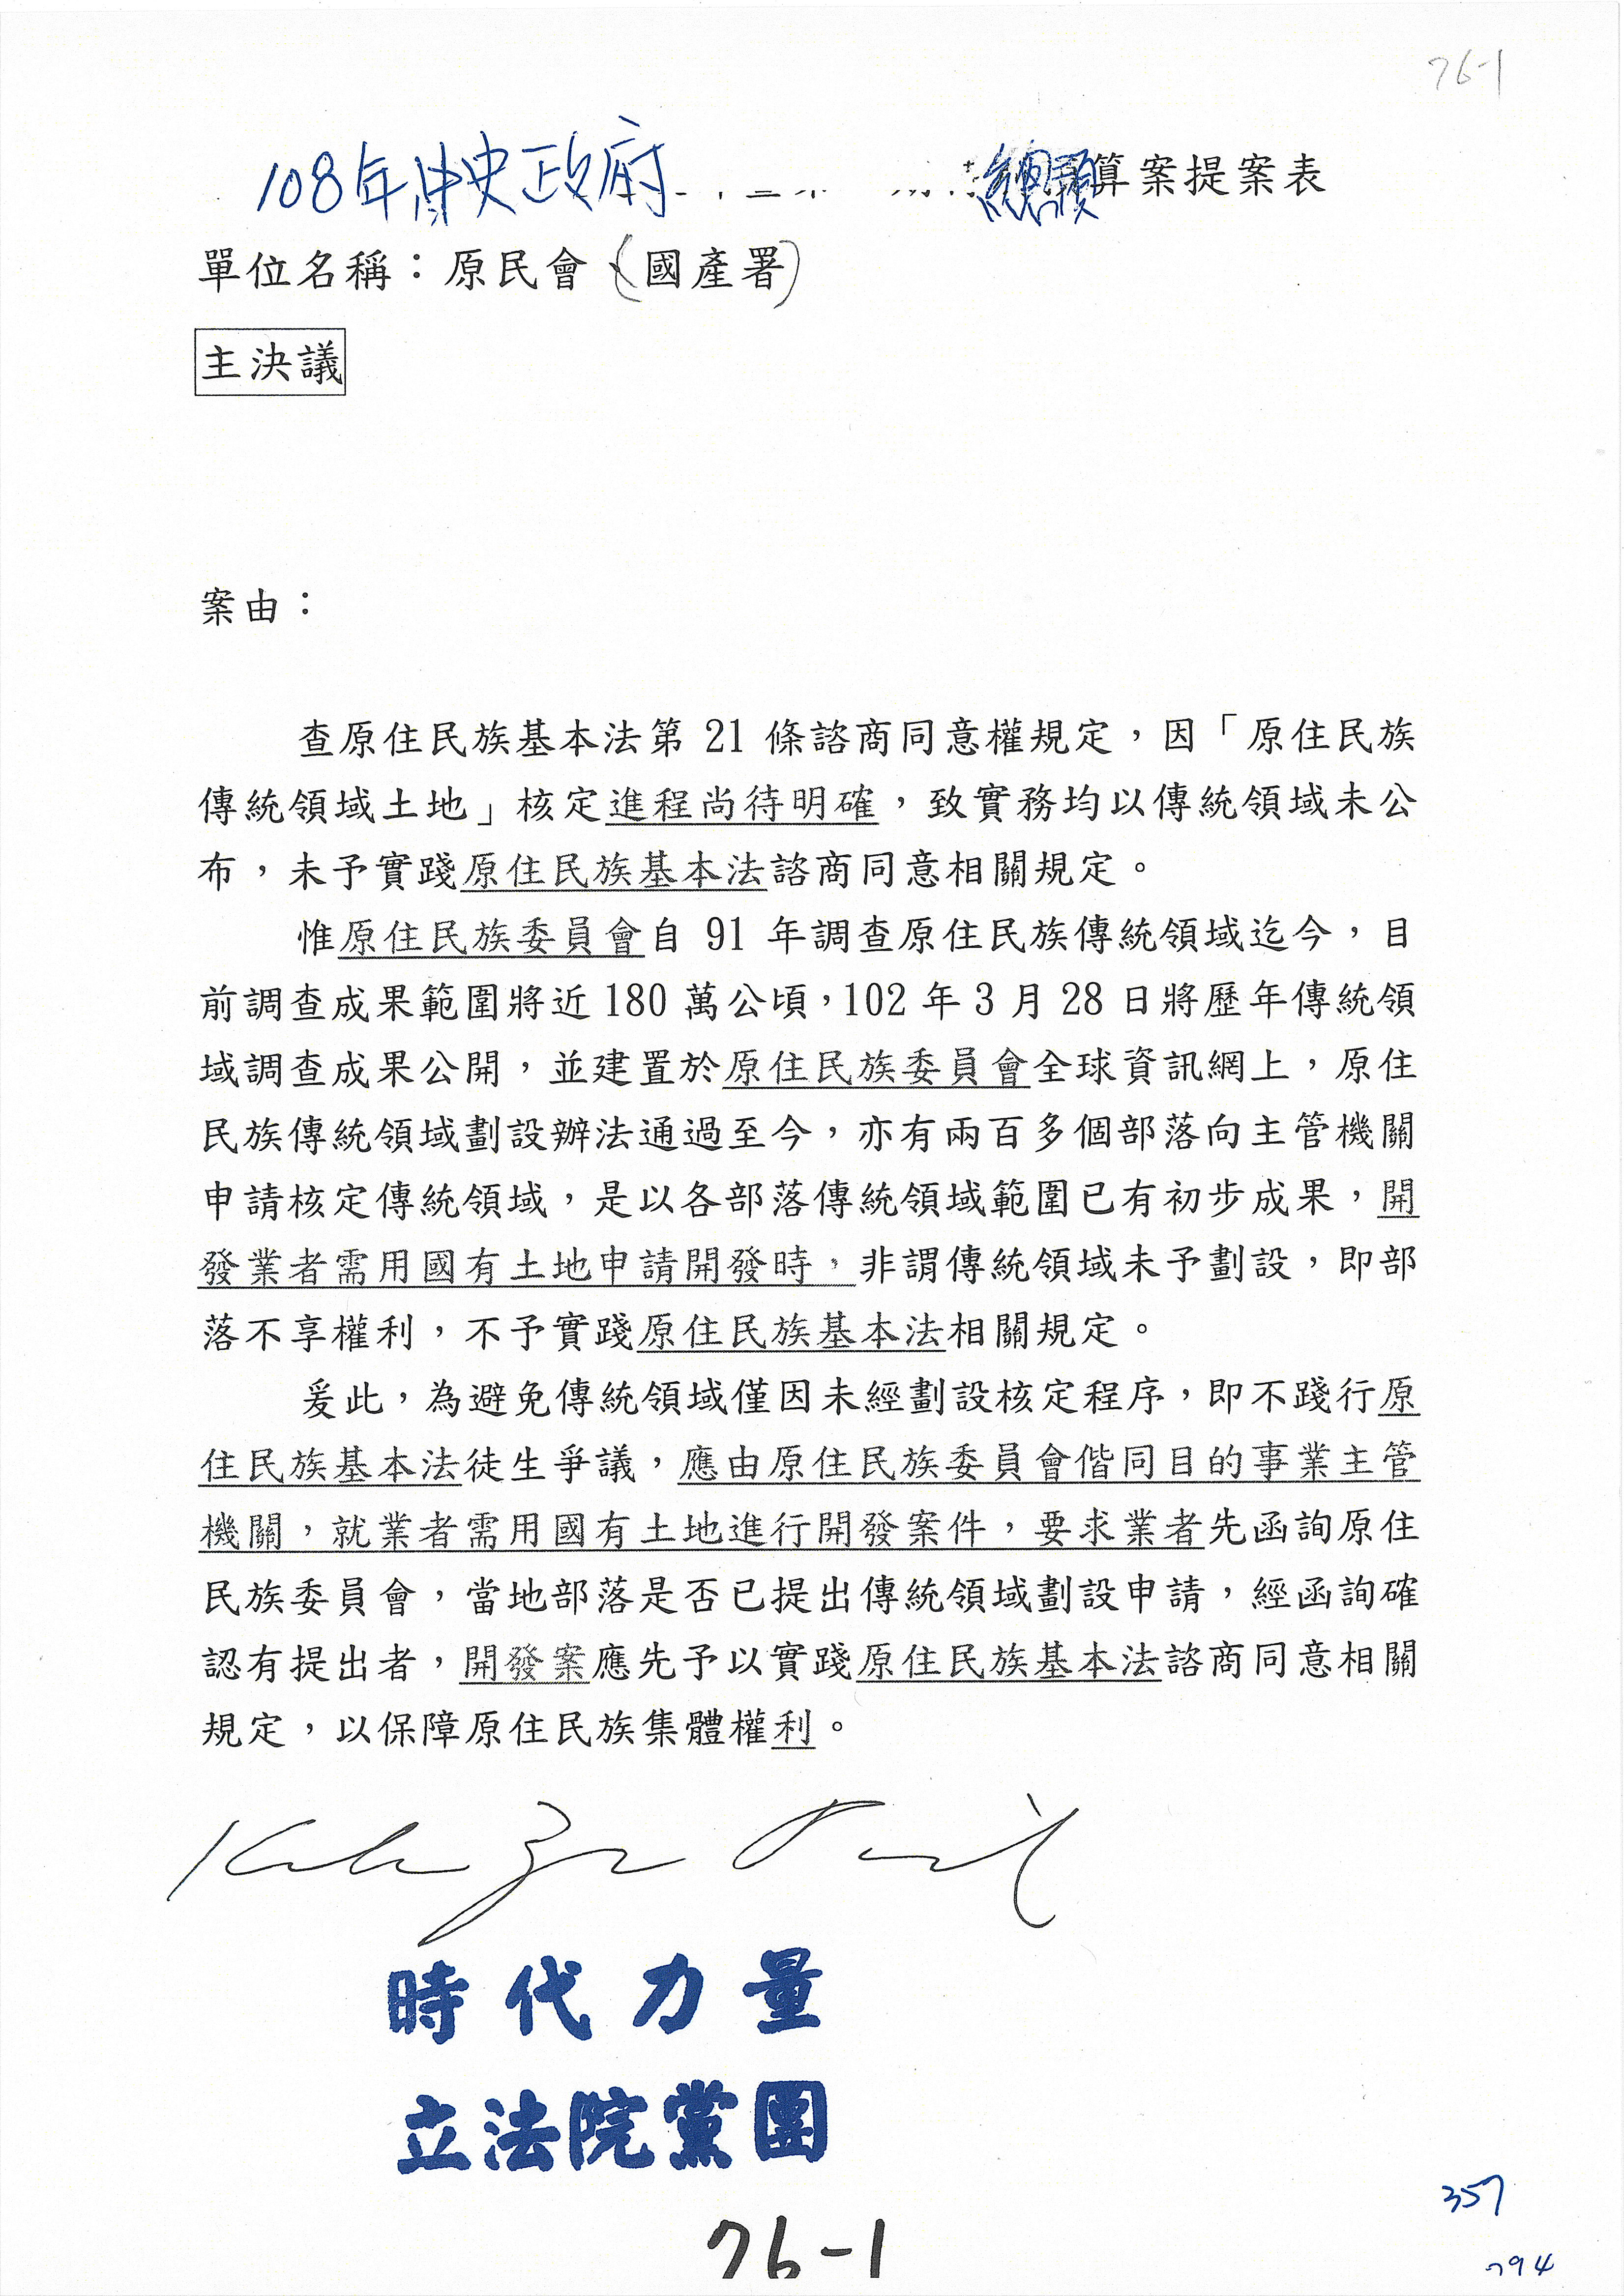 76-1
108年中央政府總預算案提案表
單位名稱：原民會、(國產署)
主決議
案由：
查原住民族基本法第 21 條諮商同意權規定，因「原住民族
傳統領域土地」核定進程尚待明確，致實務均以傳統領域未公
布，未予實踐原住民族基本法諮商同意相關規定。
惟原住民族委員會自 91 年調查原住民族傳統領域迄今，目
前調查成果範圍將近 180 萬公頃，102 年 3 月 28 日將歷年傳統領
域調查成果公開，並建置於原住民族委員會全球資訊網上，原住
民族傳統領域劃設辦法通過至今，亦有兩百多個部落向主管機關
申請核定傳統領域，是以各部落傳統領域範圍已有初步成果，開
發業者需用國有土地申請開發時，非謂傳統領域未予劃設，即部
落不享權利，不予實踐原住民族基本法相關規定。
爰此，為避免傳統領域僅因未經劃設核定程序，即不踐行原
住民族基本法徒生爭議，應由原住民族委員會偕同目的事業主管
機關，就業者需用國有土地進行開發案件，要求業者先函詢原住
民族委員會，當地部落是否已提出傳統領域劃設申請，經函詢確
認有提出者，開發案應先予以實踐原住民族基本法諮商同意相關
規定，以保障原住民族集體權利。
時代力量
立法院黨團
76-1
357
794